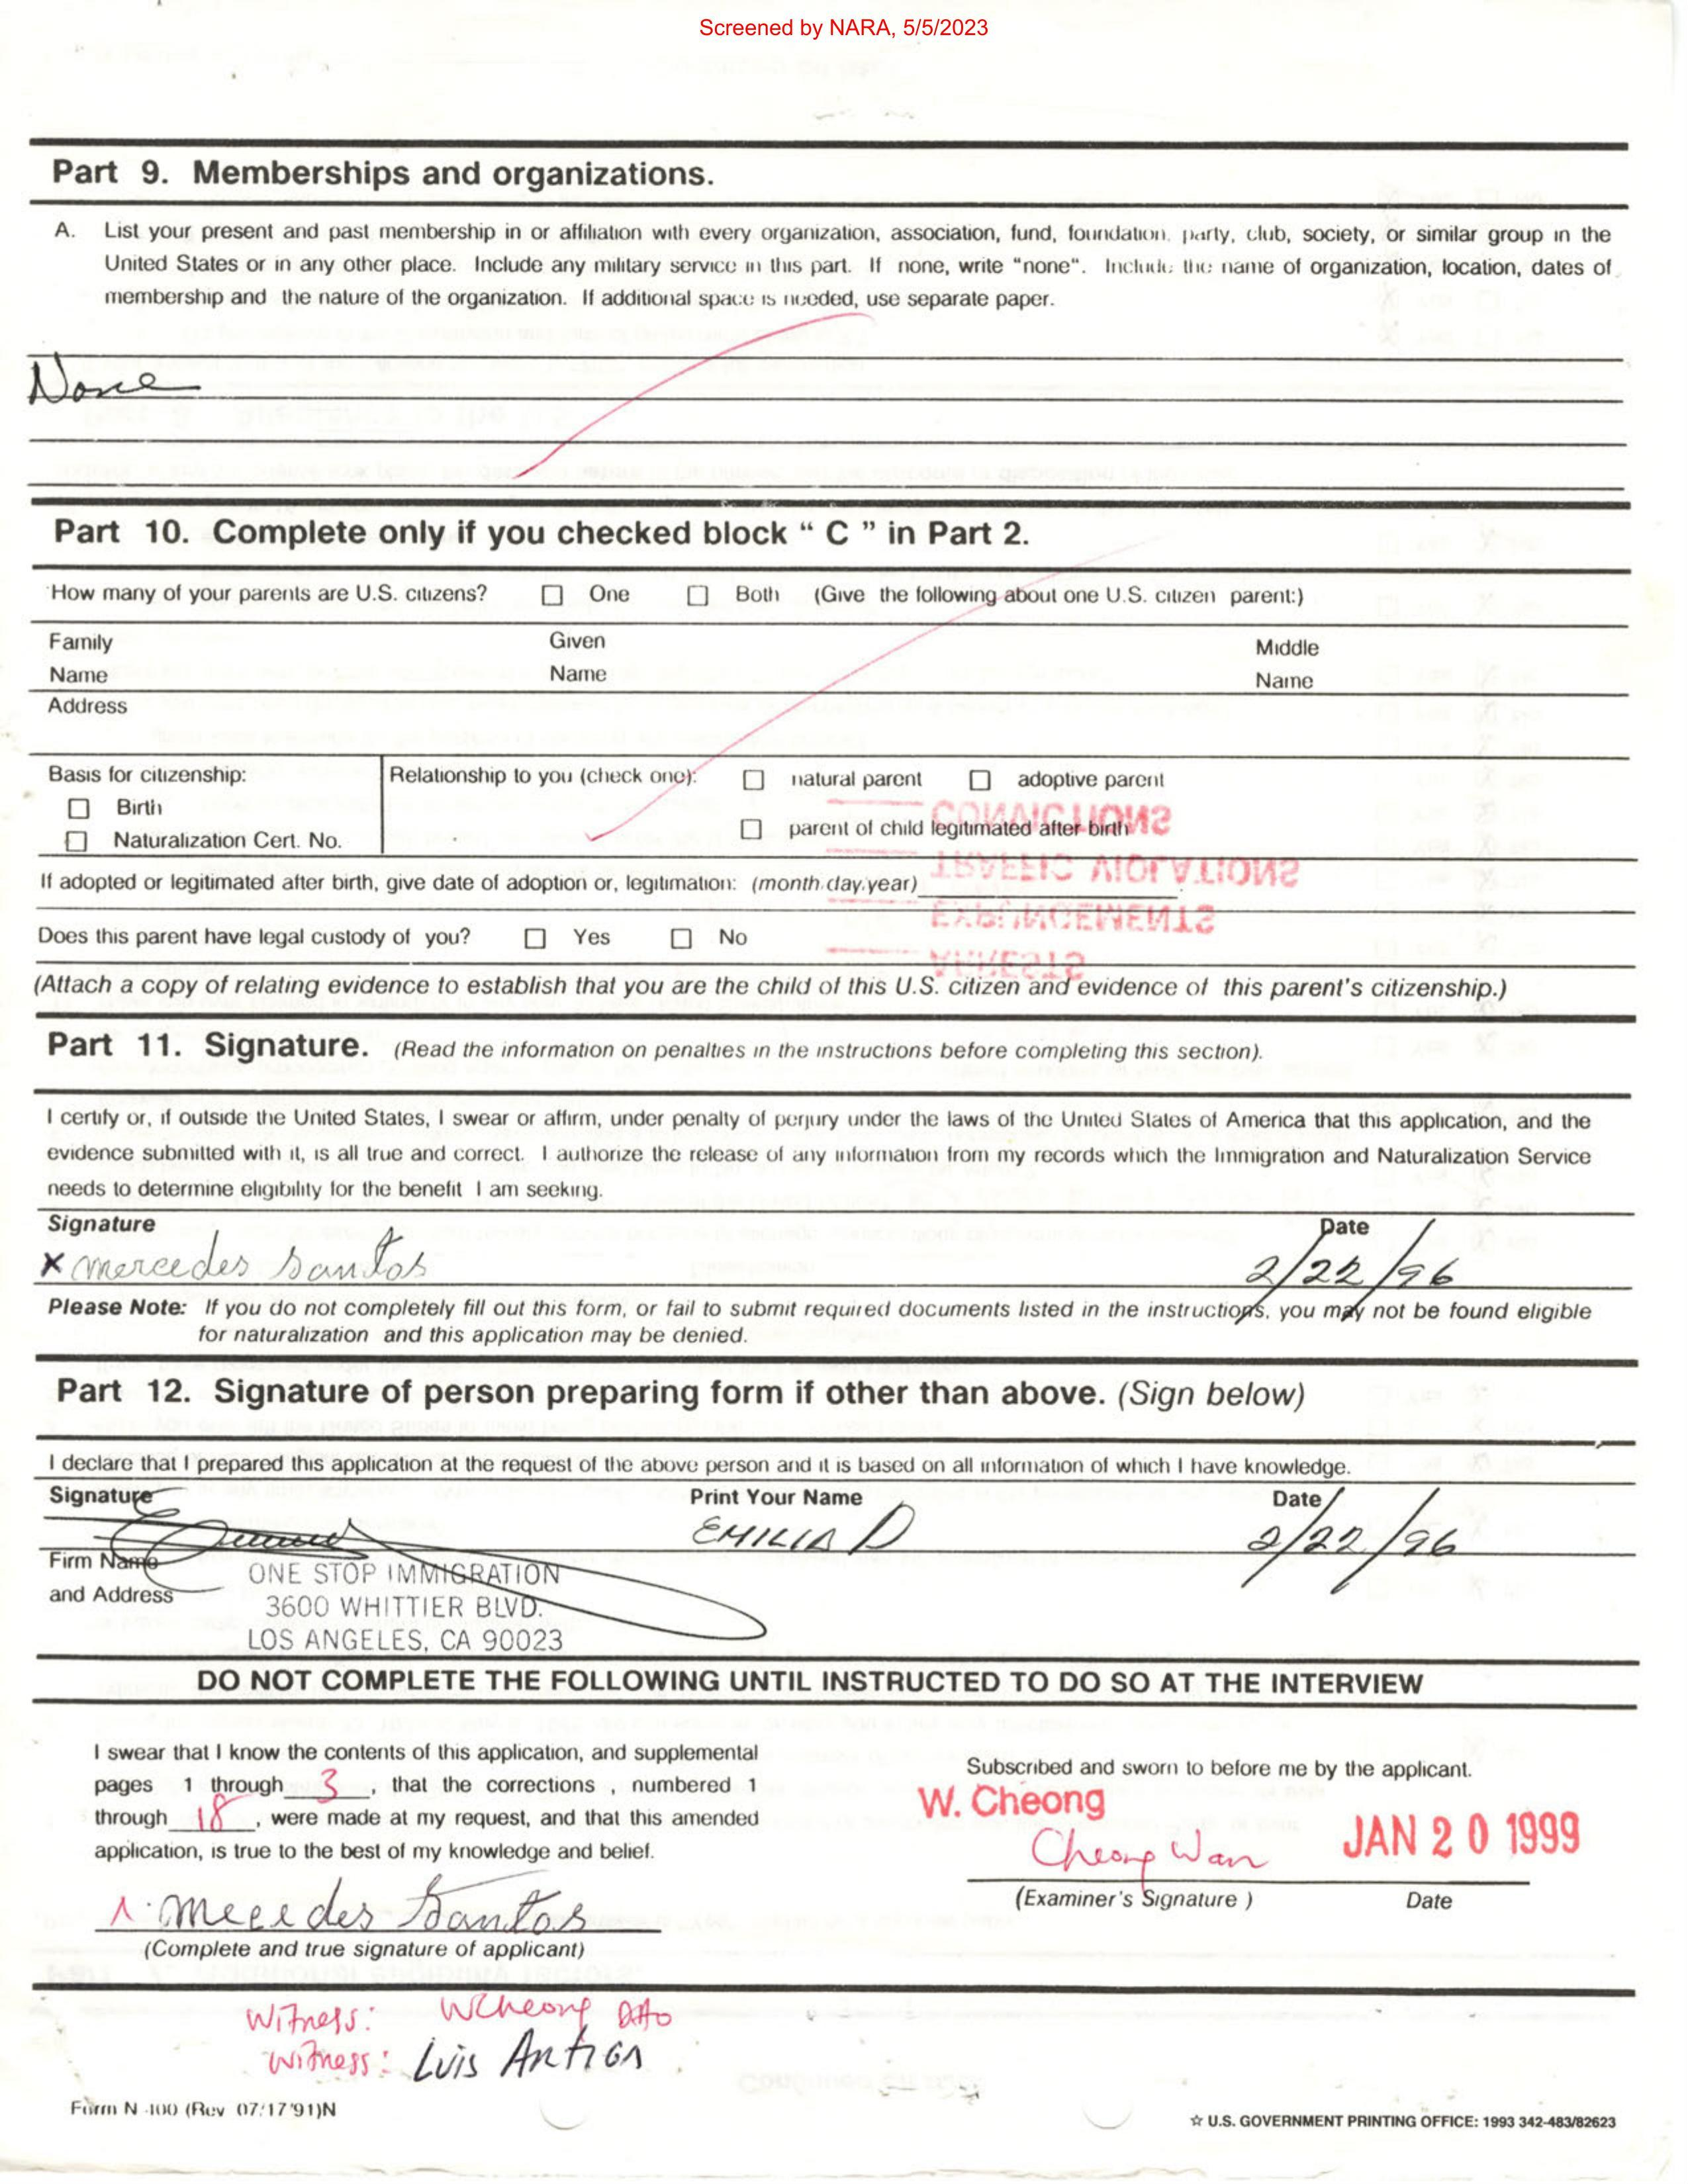 Screened by NARA, 5/5/2023
Part 9. Memberships and organizations.
A. List your present and past membership in or affiliation with every organization, association, fund, foundation, party, club, society, or similar group in the
United States or in any other place. Include any military service in this part. If none, write "none". Include the name of organization, location, dates of
membership and the nature of the organization. If additional space is needed, use separate paper.
None
Part 10. Complete only if you checked block " C " in Part 2.
How many of your parents are U.S. citizens? ☐ One ☐ Both (Give the following about one U.S. citizen parent:)
Family Given Middle
Name Name Name
Address
Basis for citizenship: Relationship to you (check one): ☐ natural parent ☐ adoptive parent
☐ Birth
☐ parent of child legitimated after birth
☐ Naturalization Cert. No.
CONVICTIONS
TRAFFIC VIOLATIONS
If adopted or legitimated after birth, give date of adoption or, legitimation: (month/day/year)
EXPUNGEMENTS
Does this parent have legal custody of you? ☐ Yes ☐ No
ARRESTS
(Attach a copy of relating evidence to establish that you are the child of this U.S. citizen and evidence of this parent's citizenship.)
Part 11. Signature. (Read the information on penalties in the instructions before completing this section).
I certify or, if outside the United States, I swear or affirm, under penalty of perjury under the laws of the United States of America that this application, and the
evidence submitted with it, is all true and correct. I authorize the release of any information from my records which the Immigration and Naturalization Service
needs to determine eligibility for the benefit I am seeking.
Signature Date
x mercedes santos 2/22/96
Please Note: If you do not completely fill out this form, or fail to submit required documents listed in the instructions, you may not be found eligible
for naturalization and this application may be denied.
Part 12. Signature of person preparing form if other than above. (Sign below)
I declare that I prepared this application at the request of the above person and it is based on all information of which I have knowledge.
Signature Print Your Name Date
EMILIA D 2/22/96
Firm Name ONE STOP IMMIGRATION
and Address 3600 WHITTIER BLVD.
LOS ANGELES, CA 90023
DO NOT COMPLETE THE FOLLOWING UNTIL INSTRUCTED TO DO SO AT THE INTERVIEW
I swear that I know the contents of this application, and supplemental
pages 1 through 3, that the corrections , numbered 1
through 18, were made at my request, and that this amended
application, is true to the best of my knowledge and belief.
mercedes Santos
(Complete and true signature of applicant)
Subscribed and sworn to before me by the applicant.
W. Cheong
Cheong Wan JAN 20 1999
(Examiner's Signature ) Date
Witness: WCheong
Witness: Luis
Form N-400 (Rev 07/17/91)N
☆ U.S. GOVERNMENT PRINTING OFFICE: 1993 342-483/82623